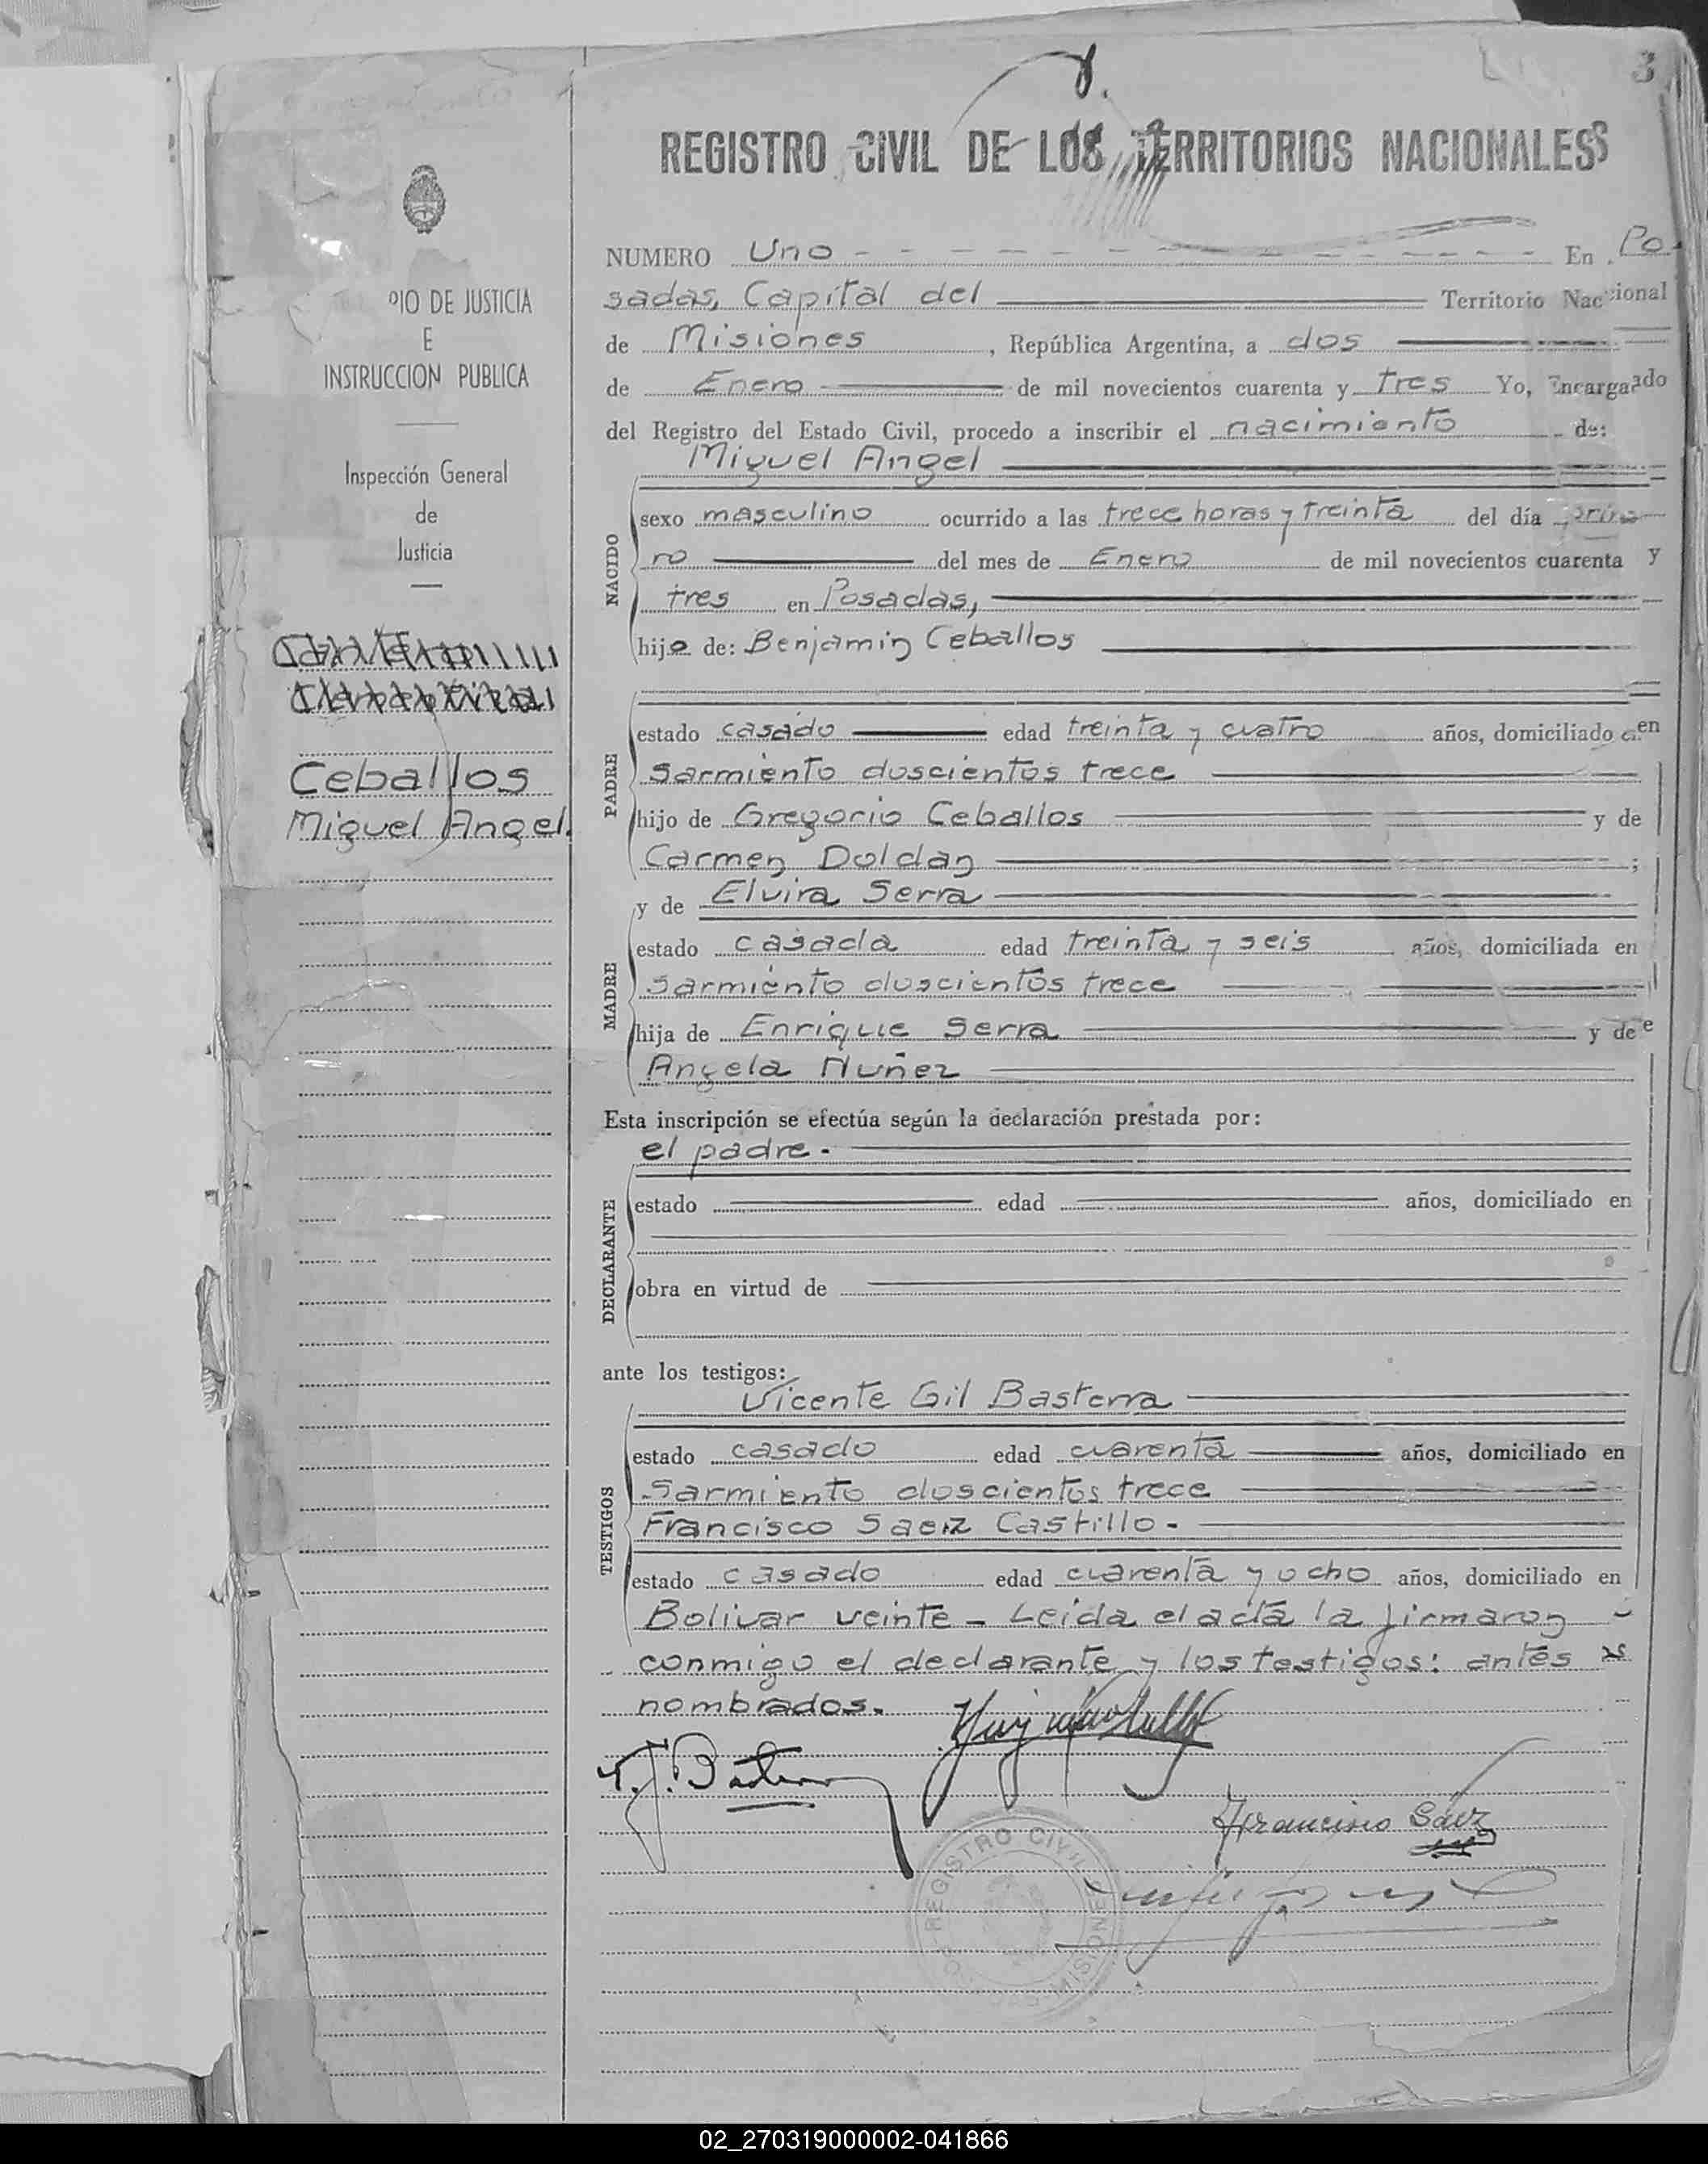 3
REGISTRO CIVIL DE LOS TERRITORIOS NACIONALES
NUMERO Uno En Po-
sadas, Capital del Territorio Nacional
de Misiones, República Argentina, a dos
de Enero de mil novecientos cuarenta y tres Yo, Encargado
del Registro del Estado Civil, procedo a inscribir el nacimiento de:
Miguel Angel
NACIDO
sexo masculino ocurrido a las trece horas y treinta del día
ro del mes de Enero de mil novecientos cuarenta y
tres en Posadas,
hijo de: Benjamin Ceballos
PADRE
estado casado edad treinta y cuatro años, domiciliado en
Sarmiento doscientos trece
hijo de Gregorio Ceballos y de
Carmen Doldan ;
y de Elvira Serra
MADRE
estado casada edad treinta y seis años, domiciliada en
Sarmiento doscientos trece
hija de Enrique Serra y de
Angela Nuñez
Esta inscripción se efectúa según la declaración prestada por:
el padre.
DECLARANTE
estado edad años, domiciliado en
obra en virtud de
ante los testigos:
Vicente Gil Basterra
TESTIGOS
estado casado edad cuarenta años, domiciliado en
Sarmiento doscientos trece
Francisco Saez Castillo.
estado casado edad cuarenta y ocho años, domiciliado en
Bolivar veinte - Leida el acta la firmaron
conmigo el declarante y los testigos: antes
nombrados.
Francisco Saez
REGISTRO CIVIL
PIO DE JUSTICIA
E
INSTRUCCION PUBLICA
Inspección General
de
Justicia
Ceballos
Miguel Angel.
02_270319000002-041866